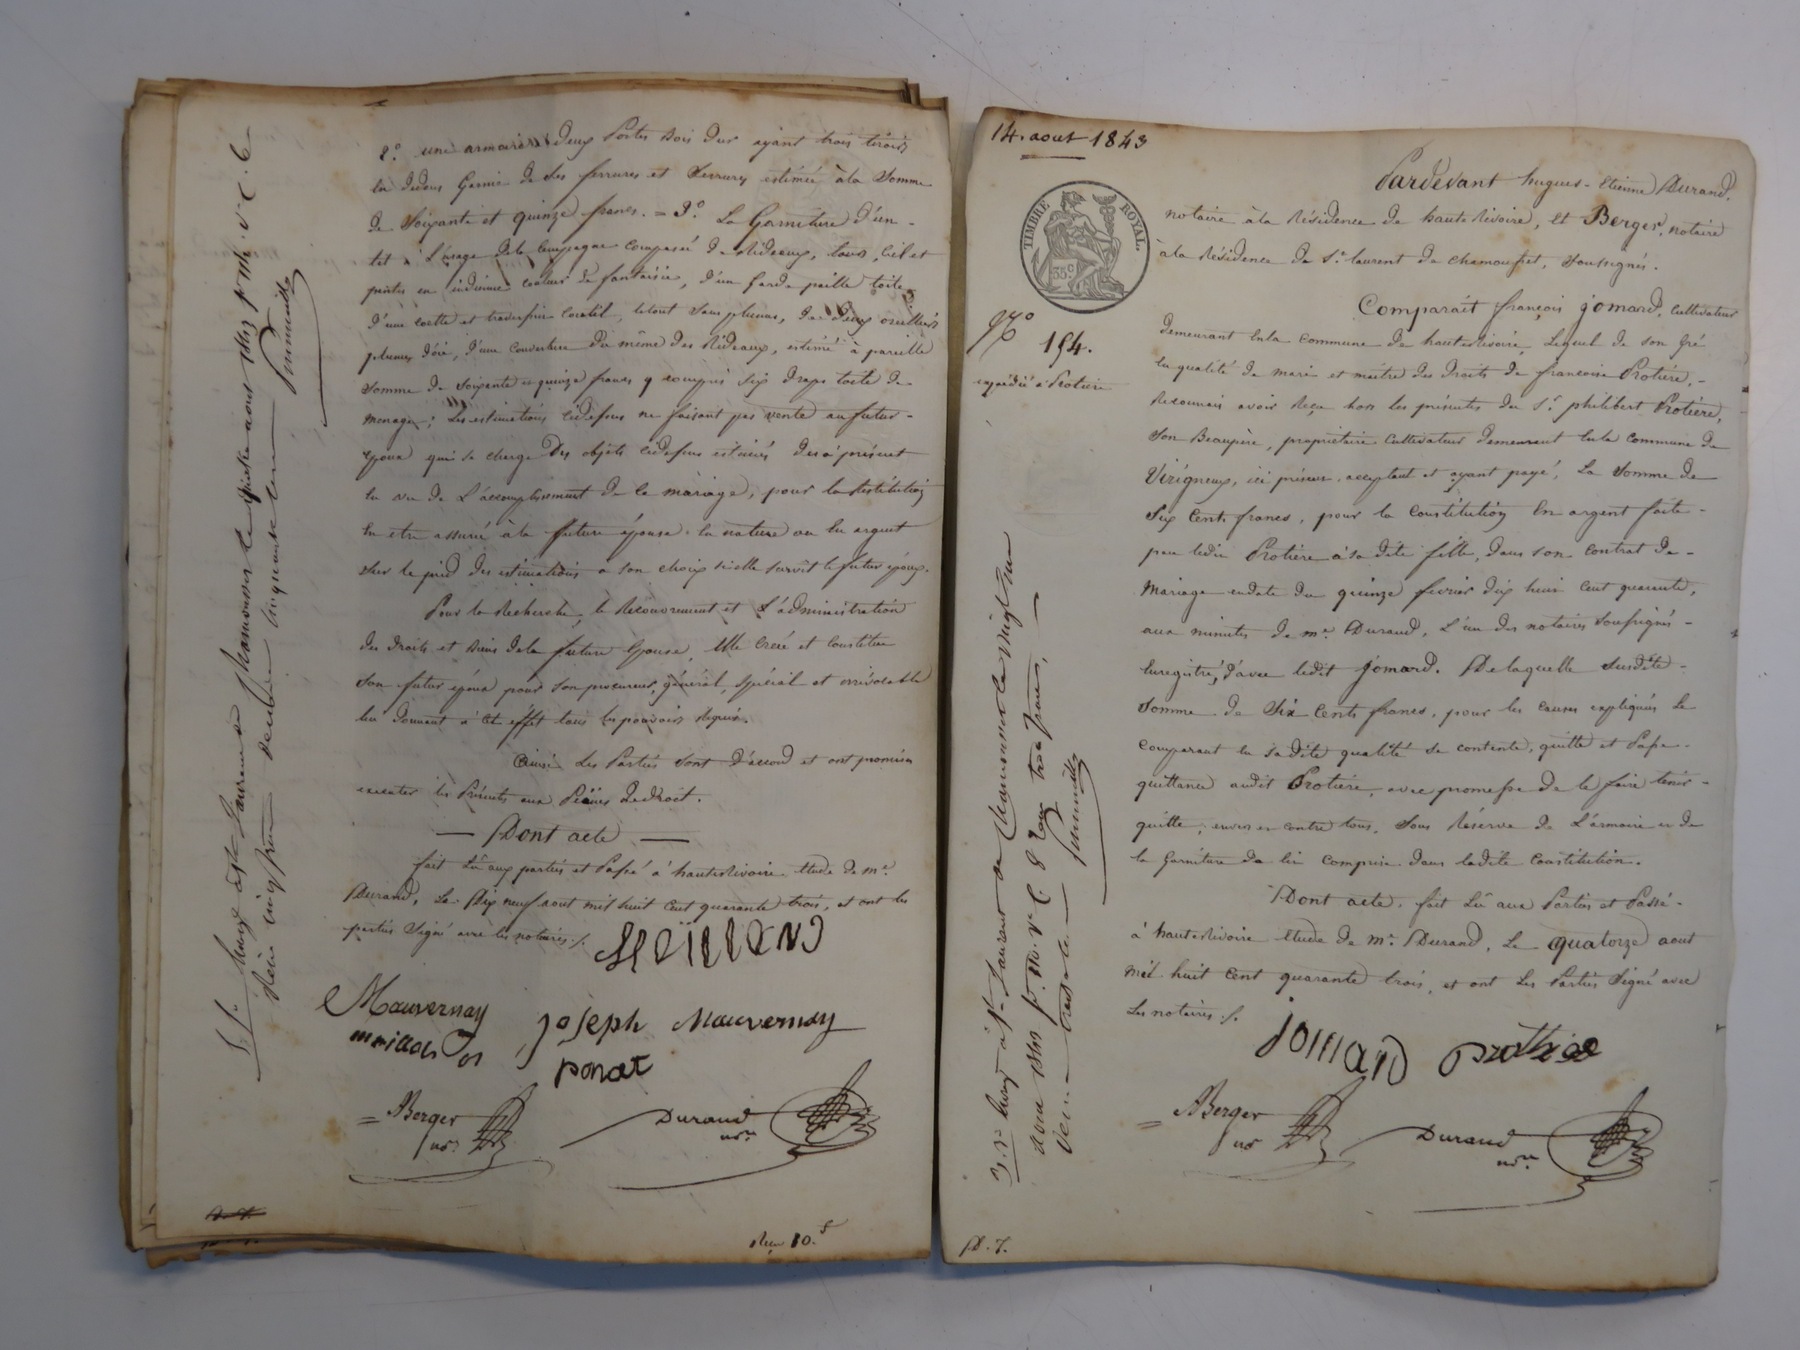 2.° une armoire deux Portes bois dur ayant trois tiroirs
en dedans Garnie de ses ferrures et Serrures estimée à la Somme
de Soixante et quinze francs. = 3.° La Garniture d'un -
lit à L'usage de la Campagne composée de Rideaux, tour, Ciel et
pentes en indienne couleur de fantaisie, d'un Garde paille toile,
d'une coette et traversin Coutil, le tout Sans plumes, de deux oreillers
plumes d'oie, d'une Couverture du même des Rideaux, estimé à pareille
Somme de Soixante et quinze francs y compris Six draps toile de
menage; Les estimations cidessus ne faisant pas vente au futur -
Epoux qui se charge Des objets cidessus estimés des à présent
en vu de L'accomplissement de ce mariage, pour la Restitution
en etre assurée à la future épouse en nature ou en argent
sur le pied des estimations a son choix si elle survit le futur époux.
Pour la Recherche, le Recouvrement et L'administration
des droits et biens de la future Epouse, Elle Créé et Constitue
Son futur époux pour Son procureur, général, Spécial et irrévocable
lui donnant à cet effet tous les pouvoirs Requis.
Ainsi Les Parties Sont D'accord et ont promis
executer les Présentes aux Peines de droit.
— Dont acte —
fait Lû aux parties et Passé à hauterivoire Etude de m.e
Durand, Le Dix neuf aout mil huit Cent quarante trois, et ont les
parties Signé avec les notaires ./.
Mauvernay Joseph Mauvernay
ponat
= Berger
Durand
nre
Reçu 10.f
14. aout 1843
TIMBRE ROYAL
35c
N.o 154.
expédié à Protière
Pardevant hugues - Etienne Durand,
notaire à la Résidence de hauterivoire, Et Berger, notaire
à la Résidence de St. laurent de chamousset, Soussignés.
Comparaît françois jomard, Cultivateur
demeurant en la Commune de hauterivoire, Lequel de son Gré
en qualité de mari et maître des Droits de francoise Protière, -
Reconnais avoir Reçu hors les présentes du Sr. philibert Protière,
Son Beaupère, propriétaire Cultivateur demeurant en la Commune de
Virigneux, ici présent, acceptant et ayant payé, La Somme de
Six Cents francs, pour la Constitution En argent faite -
par ledit Protière à sa dite fille, dans son Contrat de -
Mariage en date du quinze fevrier dix huit Cent quarante,
aux minutes de me. Durand, L'un des notaires Soussignés -
Enregistré, d'avec ledit jomard. De laquelle Susdite -
Somme de Six Cents francs, pour les Causes expliquées Le
Comparant en Sa dite qualité Se contente, quitte et Passe -
quittance audit Protière, avec promesse de le faire tenir -
quitte, envers et contre tous, Sous Réserve de L'armoire et de
la Garniture de lit Comprise dans ladite Constitution.
Dont acte. fait Lû aux Parties et Passé -
à hauterivoire Etude de me. Durand, Le quatorze aout
mil huit Cent quarante trois, et ont Les Parties Signé avec
Les notaires ./.
jomard protière
= Berger
Durand
nre
D. 7.